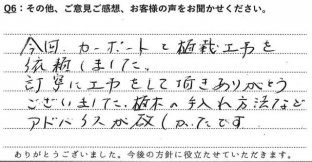 Q6：その他、ご意見ご感想、お客様の声をお聞かせください。
今回、カーポートと植栽工事を
依頼しました。
丁寧に工事をして頂きありがとう
ございました。植木の手入れ方法など
アドバイスが欲しかったです
ありがとうございました。今後の方針に役立たせていただきます。